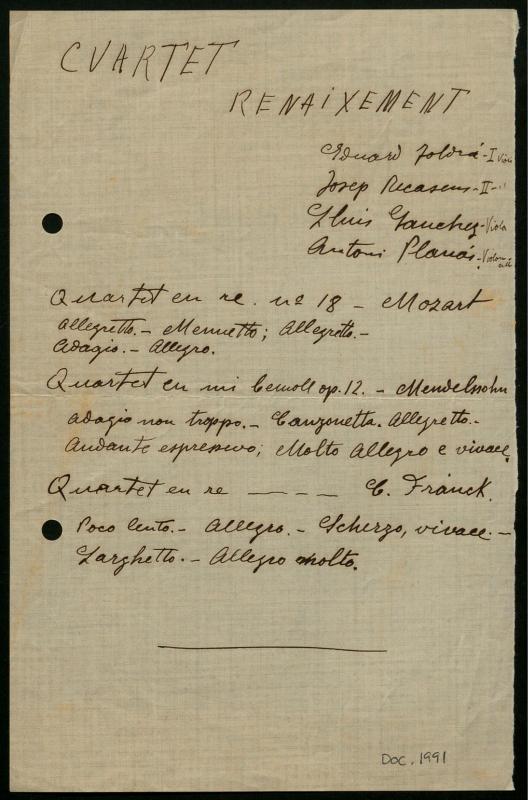 CVARTET
RENAiXEMENT
Eduard Toldrá - I Violí
Josep Recasens - II - "
Lluis Sanchez - Viola
Antoni Planás - Violoncell
Quartet en re. nº 18 - Mozart
Allegretto. - Menuetto; Allegretto. -
Adagio. - Allegro.
Quartet en mi bemoll op. 12. - Mendelssohn
Adagio non troppo. - Canzonetta. Allegretto. -
Andante espressivo; Molto Allegro e vivace.
Quartet en re - - - - C. Franck.
Poco lento. - Allegro. - Scherzo, vivace. -
Larghetto. - Allegro molto.
DOC. 1991